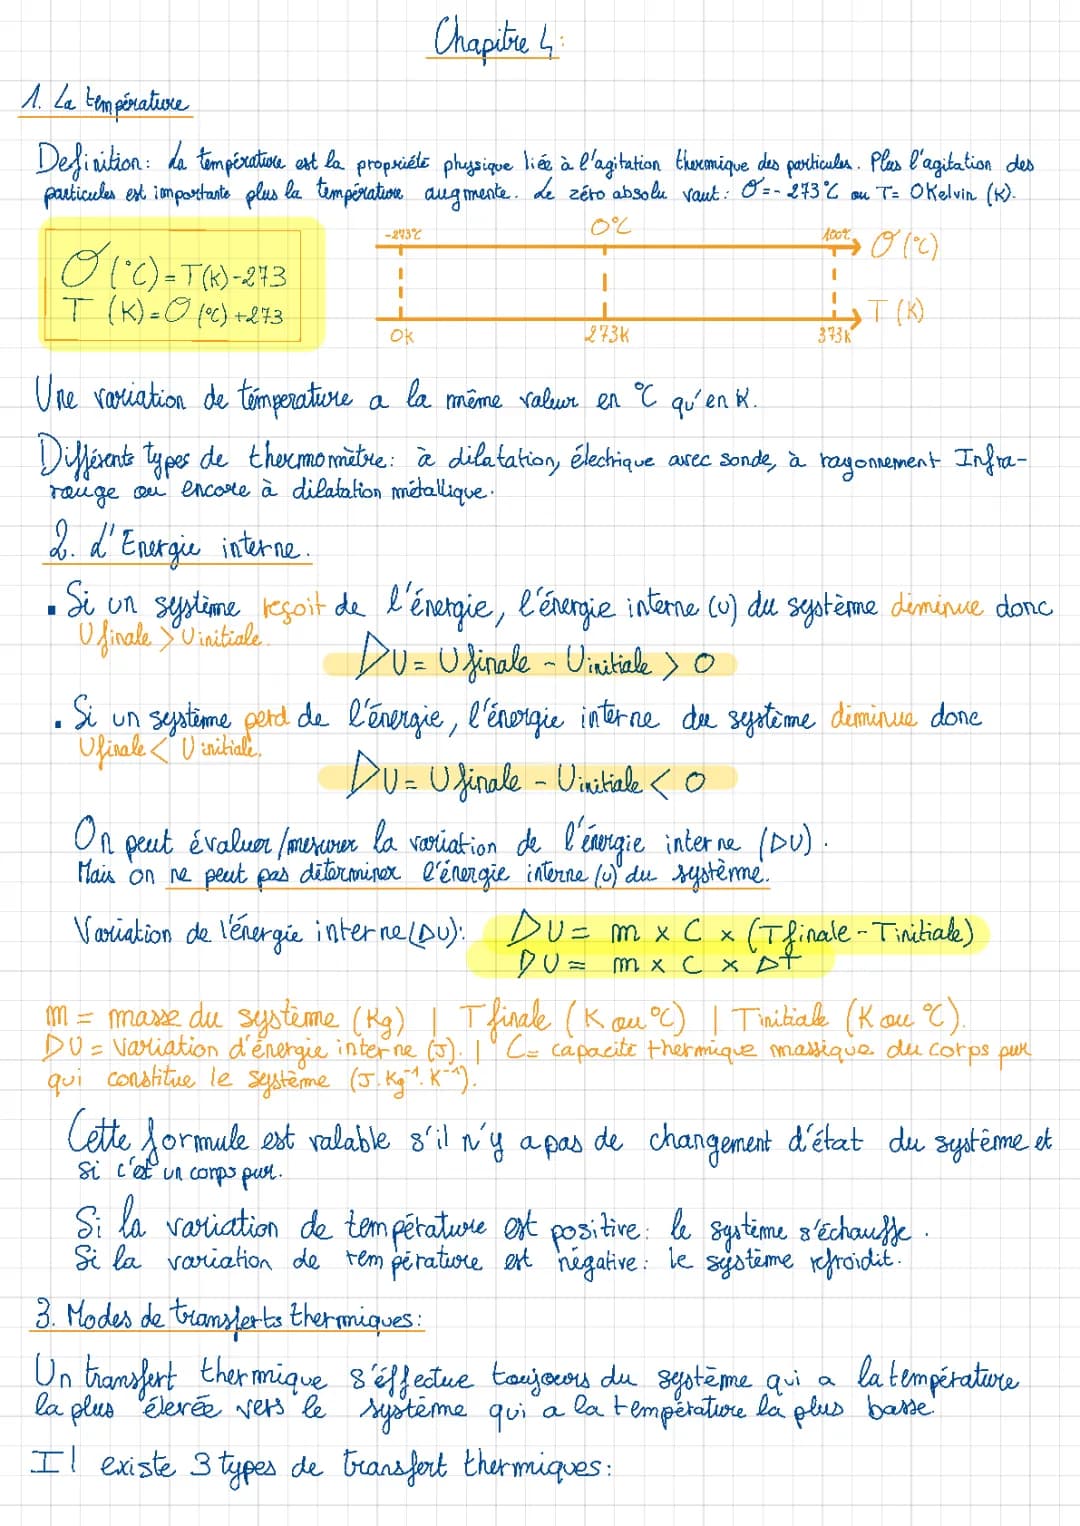 Chapitre 4:
1. La température
Definition: La température est la propriété physique liée à l'agitation thermique des particules. Plus l'agitation des
particules est importante plus la température augmente. Le zéro absolu vaut: Θ=-273°C ou T= 0Kelvin (K).
-273°C 0°C 100°C Θ(°C)
Θ(°C)=T(K)-273
T (K)=Θ(°C)+273
T (K)
0K 273K 373K
Une variation de température a la même valeur en °C qu'en K.
Différents types de thermomètre: à dilatation, électrique avec sonde, à rayonnement Infra-
rouge ou encore à dilatation métallique.
2. L'Energie interne.
▪ Si un système reçoit de l'énergie, l'énergie interne (U) du système diminue donc
Ufinale > Uinitiale.
ΔU= Ufinale - Uinitiale > 0
▪ Si un système perd de l'énergie, l'énergie interne du système diminue donc
Ufinale < Uinitiale.
ΔU= Ufinale - Uinitiale < 0
On peut évaluer/mesurer la variation de l'énergie interne (ΔU).
Mais on ne peut pas déterminer l'énergie interne (U) du système.
Variation de l'énergie interne(ΔU): ΔU= m x C x (Tfinale-Tinitiale)
ΔU= m x C x ΔT
m = masse du système (Kg) | Tfinale (K ou °C) | Tinitiale (K ou °C).
ΔU= Variation d'énergie interne (J). | C= capacité thermique massique du corps pur
qui constitue le système (J.Kg⁻¹.K⁻¹).
Cette formule est valable s'il n'y a pas de changement d'état du système et
si c'est un corps pur.
Si la variation de température est positive: le système s'échauffe.
Si la variation de température est négative: le système refroidit.
3. Modes de transferts thermiques:
Un transfert thermique s'éffectue toujours du système qui a la température
la plus élevée vers le système qui a la température la plus basse.
Il existe 3 types de transfert thermiques: